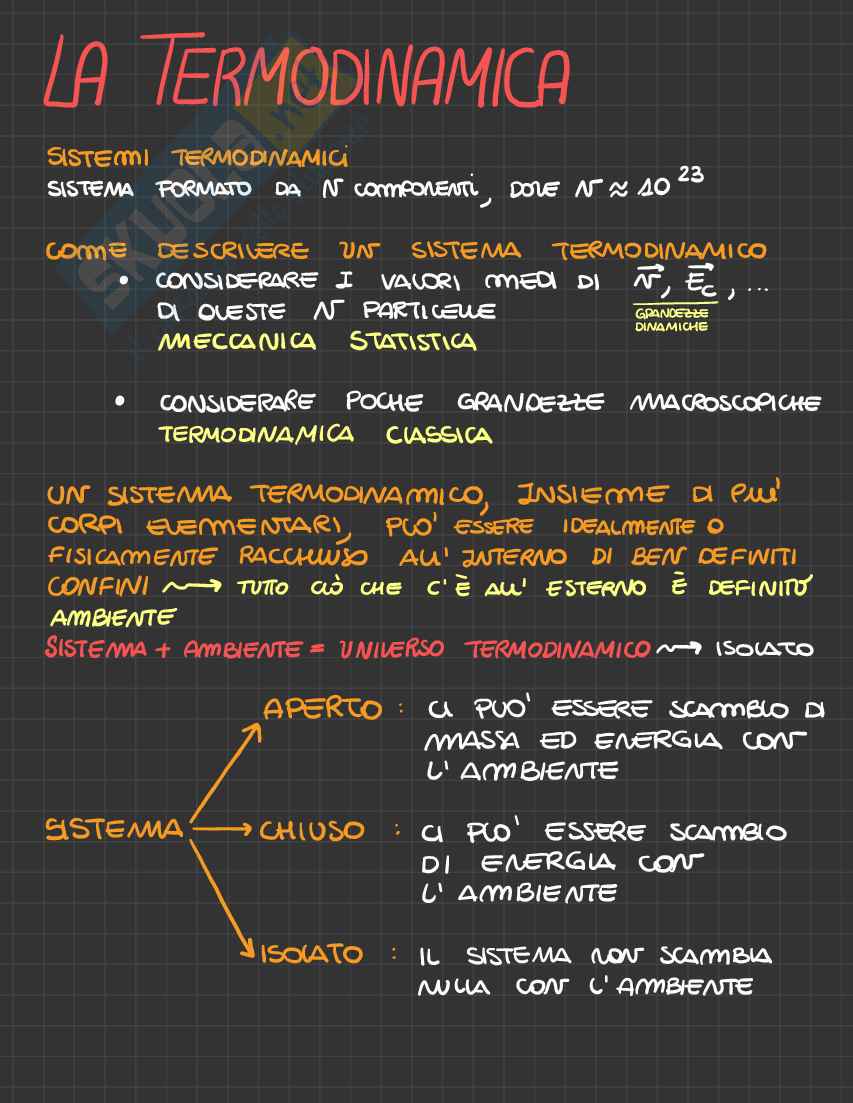 LA TERMODINAMICA
SISTEMI TERMODINAMICI
SISTEMA FORMATO DA N COMPONENTI, DOVE N ≈ 10²³
COME DESCRIVERE UN SISTEMA TERMODINAMICO
• CONSIDERARE I VALORI MEDI DI v⃗, E⃗c, ...
GRANDEZZE
DINAMICHE
DI QUESTE N PARTICELLE
MECCANICA STATISTICA
• CONSIDERARE POCHE GRANDEZZE MACROSCOPICHE
TERMODINAMICA CLASSICA
UN SISTEMA TERMODINAMICO, INSIEME DI PIU'
CORPI ELEMENTARI, PUO' ESSERE IDEALMENTE O
FISICAMENTE RACCHIUSO ALL'INTERNO DI BEN DEFINITI
CONFINI ⟿ TUTTO CIÒ CHE C'È ALL' ESTERNO È DEFINITO
AMBIENTE
SISTEMA + AMBIENTE = UNIVERSO TERMODINAMICO ⟿ ISOLATO
APERTO : CI PUO' ESSERE SCAMBIO DI
MASSA ED ENERGIA CON
L'AMBIENTE
SISTEMA → CHIUSO : CI PUO' ESSERE SCAMBIO
DI ENERGIA CON
L'AMBIENTE
ISOLATO : IL SISTEMA NON SCAMBIA
NULLA CON L'AMBIENTE
SKUOLA.net